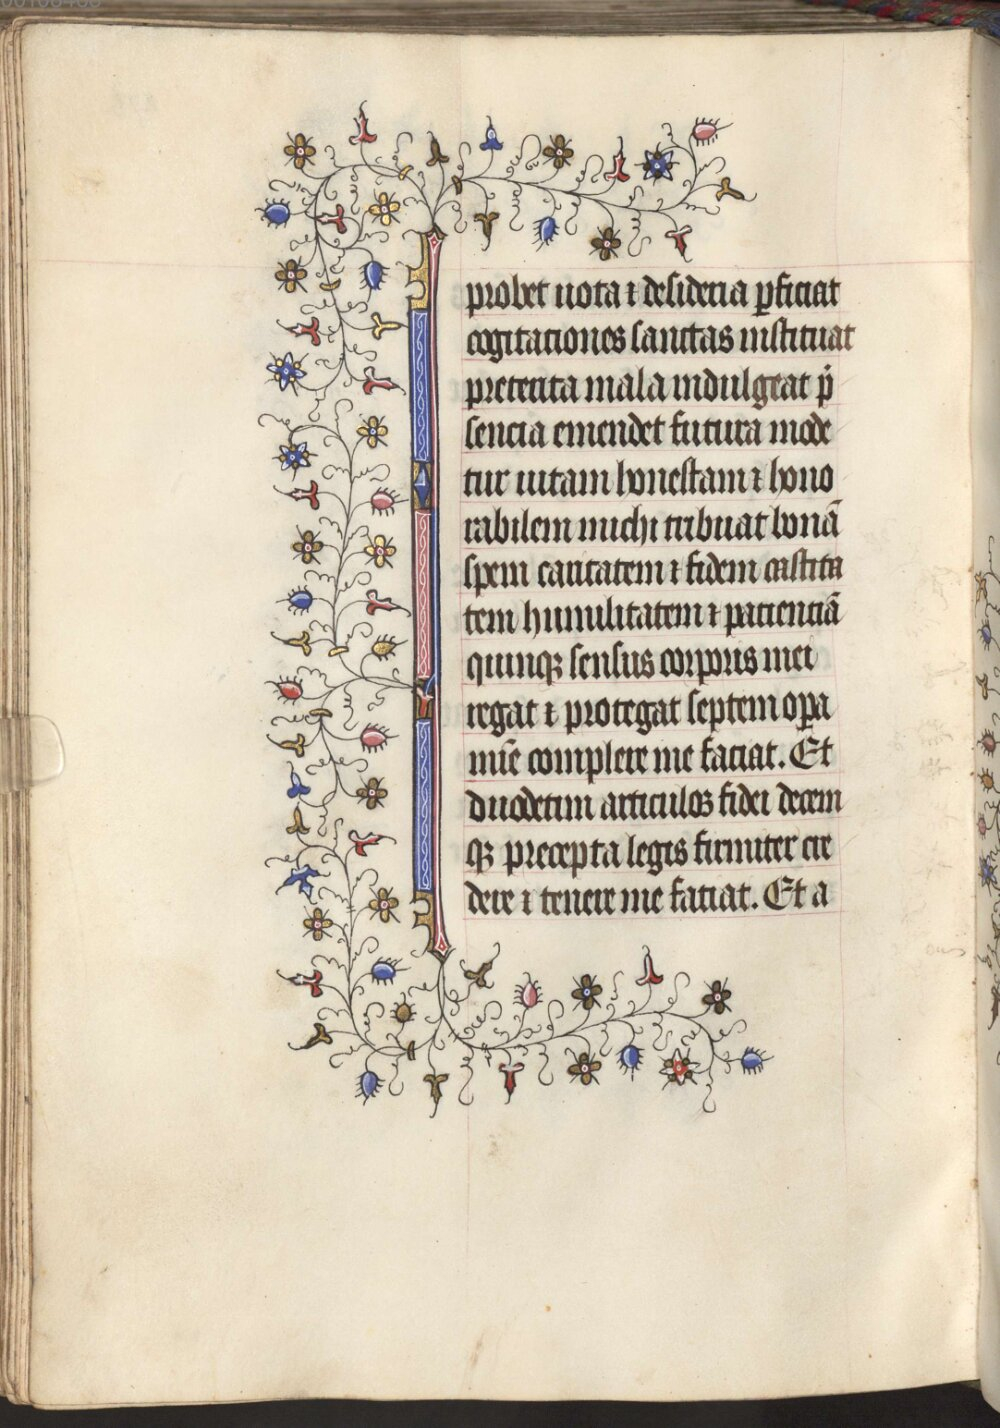 probet uota ⁊ desideria ꝑficiat
cogitationes sanctas instituat
preterita mala indulgeat p̄
sencia emendet futura mode
tur uitam honestam ⁊ hono
rabilem michi tribuat bonā
spem caritatem ⁊ fidem castita
tem humilitatem ⁊ pacienciā
quinqꝫ sensus corporis mei
regat ⁊ protegat septem oꝑa
mīe complere me faciat. Et
duodecim articulos fidei decem
qꝫ precepta legis firmiter cre
dere ⁊ tenere me faciat. Et a